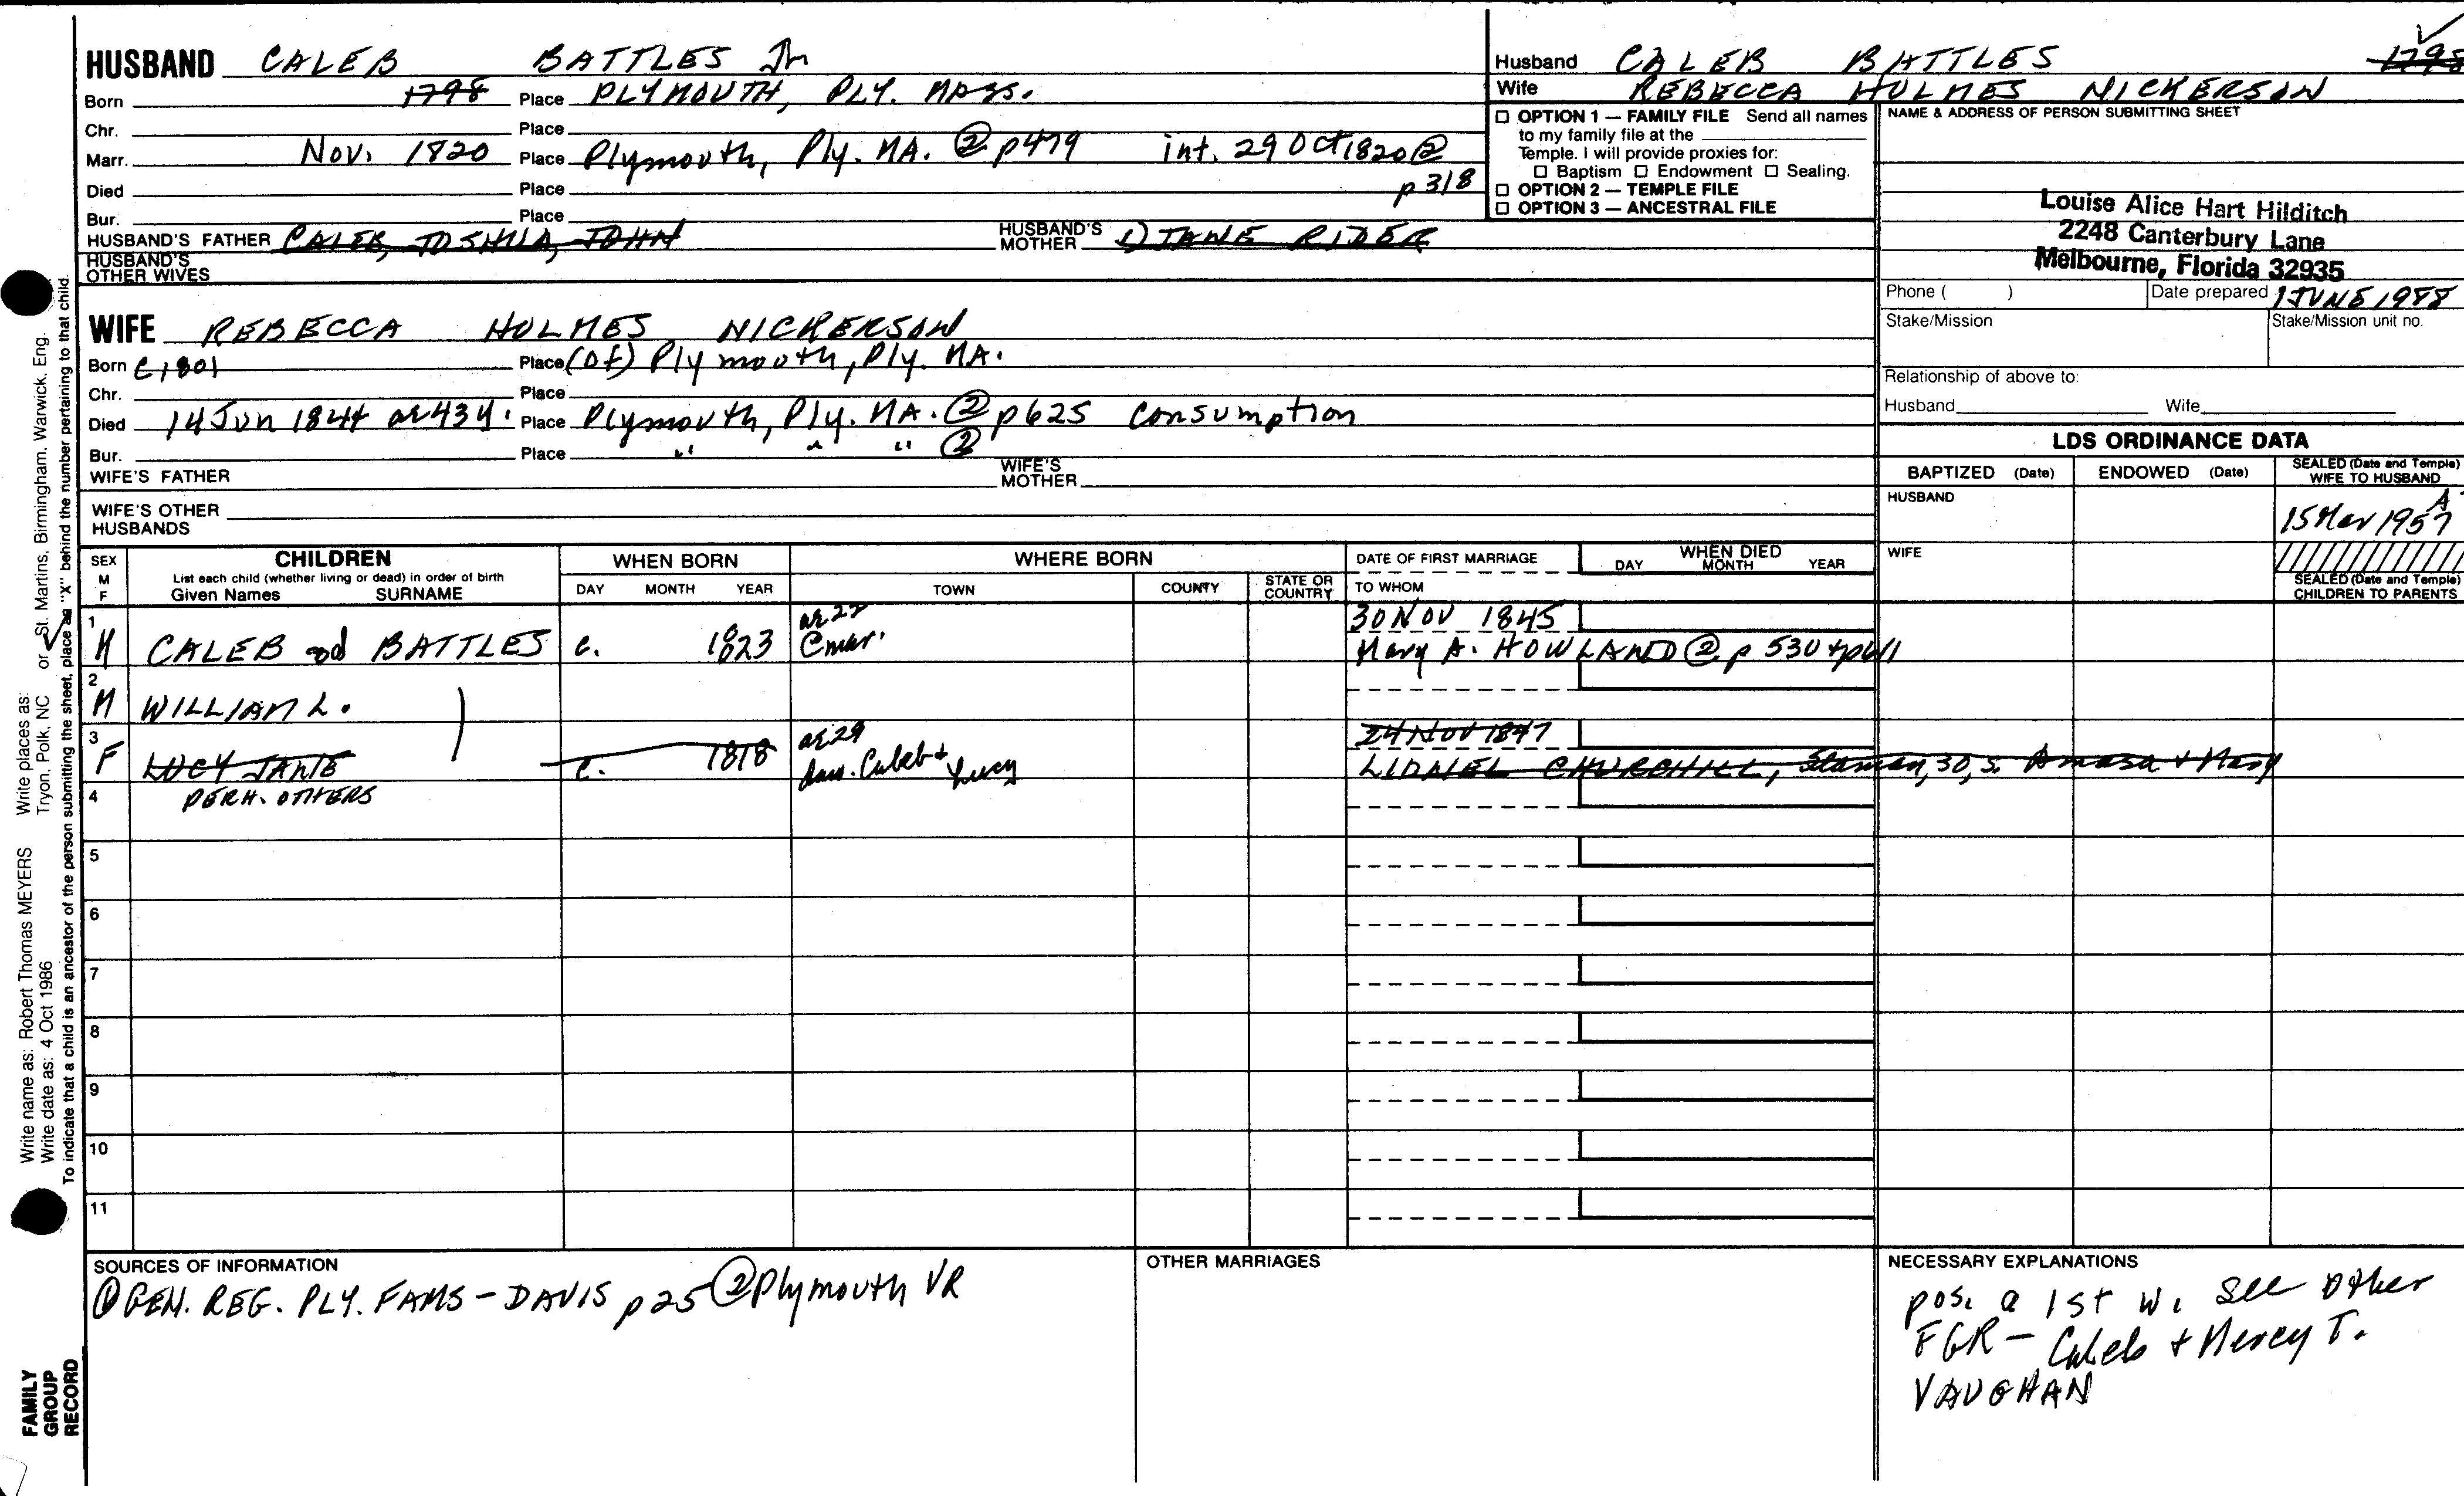 HUSBAND CALEB BATTLES Jr
Born 1798 Place PLYMOUTH, PLY. MASS.
Chr. Place
Marr. Nov. 1820 Place Plymouth, Ply. MA. ② p479 int. 29 Oct 1820 ②
p318
Died Place
Bur. Place
HUSBAND'S FATHER CALEB, JOSHUA, JOHN HUSBAND'S MOTHER 1) JANE RIDER
HUSBAND'S OTHER WIVES
Husband CALEB BATTLES 1798
Wife REBECCA HOLMES NICKERSON
☐ OPTION 1 — FAMILY FILE Send all names
to my family file at the
Temple. I will provide proxies for:
☐ Baptism ☐ Endowment ☐ Sealing.
☐ OPTION 2 — TEMPLE FILE
☐ OPTION 3 — ANCESTRAL FILE
NAME & ADDRESS OF PERSON SUBMITTING SHEET
Louise Alice Hart Hilditch
2248 Canterbury Lane
Melbourne, Florida 32935
Phone ( ) Date prepared 1 JUNE 1988
Stake/Mission Stake/Mission unit no.
Relationship of above to:
Husband Wife
WIFE REBECCA HOLMES NICKERSON
Born c1801 Place (of) Plymouth, Ply. MA.
Chr. Place
Died 14 Jun 1844 ae 43y. Place Plymouth, Ply. MA. ② p625 consumption
Bur. Place " " " ②
WIFE'S FATHER WIFE'S MOTHER
WIFE'S OTHER HUSBANDS
LDS ORDINANCE DATA
BAPTIZED (Date) ENDOWED (Date) SEALED (Date and Temple) WIFE TO HUSBAND
HUSBAND 15 Mar 1957 A
WIFE
SEALED (Date and Temple) CHILDREN TO PARENTS
SEX M F
CHILDREN
List each child (whether living or dead) in order of birth
Given Names SURNAME
WHEN BORN
DAY MONTH YEAR
WHERE BORN
TOWN COUNTY STATE OR COUNTRY
DATE OF FIRST MARRIAGE
TO WHOM
WHEN DIED
DAY MONTH YEAR
1 M CALEB BATTLES c. 1823 ae 22 @ mar. 30 NOV 1845
Mary A. HOWLAND ② p 530 + p611
2 M WILLIAM L.
3 F LUCY JANE c. 1818 ae 29 dau. Caleb + Lucy 24 NOV 1847
LIONEL CHURCHILL, Seaman, 30, s. Amasa + Mary
4 PERH. OTHERS
5
6
7
8
9
10
11
SOURCES OF INFORMATION
① GEN. REG. PLY. FAMS - DAVIS p 25 ② Plymouth VR
OTHER MARRIAGES
NECESSARY EXPLANATIONS
pos. a 1st w. see other
FGR — Caleb + Mercy T.
VAUGHAN
Write name as: Robert Thomas MEYERS Write places as: or St. Martins, Birmingham, Warwick, Eng.
Write date as: 4 Oct 1986 Tryon, Polk, NC
To indicate that a child is an ancestor of the person submitting the sheet, place an "X" behind the number pertaining to that child.
FAMILY
GROUP
RECORD